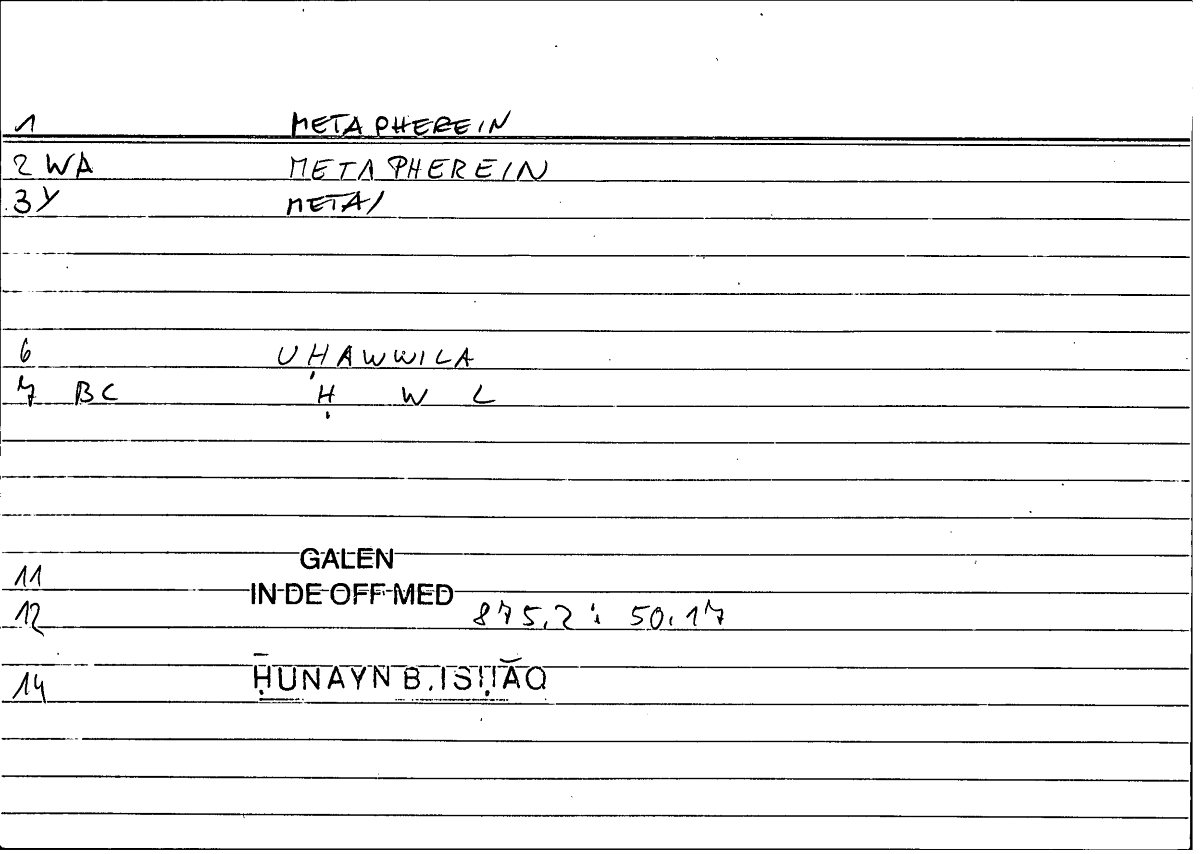 1 METAPHEREIN
2 WA METAPHEREIN
3Y META/
6 UḤAWWILA
7 BC Ḥ W L
11 GALEN
IN DE OFF MED
12 875.2 : 50.17
14 ḤUNAYN B. ISḤĀQ